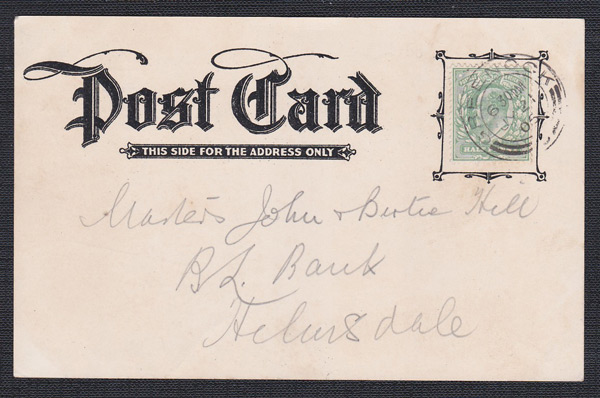 Post Card
THIS SIDE FOR THE ADDRESS ONLY
Masters John & Bertie Hill
B L. Bank
Helmsdale
HAL